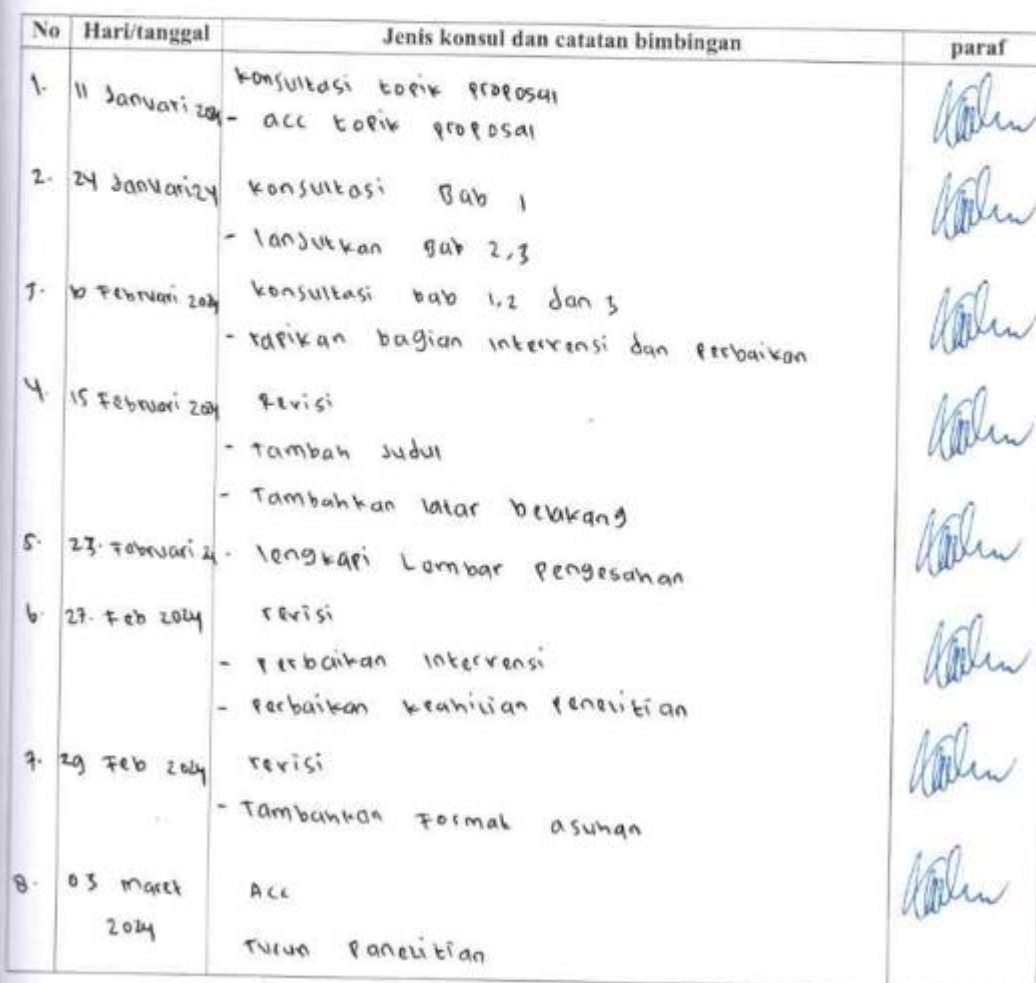 No Hari/tanggal Jenis konsul dan catatan bimbingan paraf
1. 11 Januari 2024 konsultasi topik proposal
- acc topik proposal
2. 24 Januari 24 konsultasi Bab 1
- lanjutkan Bab 2,3
3. Februari 2024 konsultasi bab 1,2 dan 3
- rapikan bagian intervensi dan perbaikan
4. 15 Februari 2024 Revisi
- Tambah Judul
- Tambahkan latar belakang
5. 23. Februari 24 - lengkapi Lembar pengesahan
6. 27. Feb 2024 revisi
- Perbaikan intervensi
- Perbaikan keahilian penelitian
7. 29 Feb 2024 revisi
- Tambahkan Format asuhan
8. 03 maret Acc
2024
Turun Penelitian